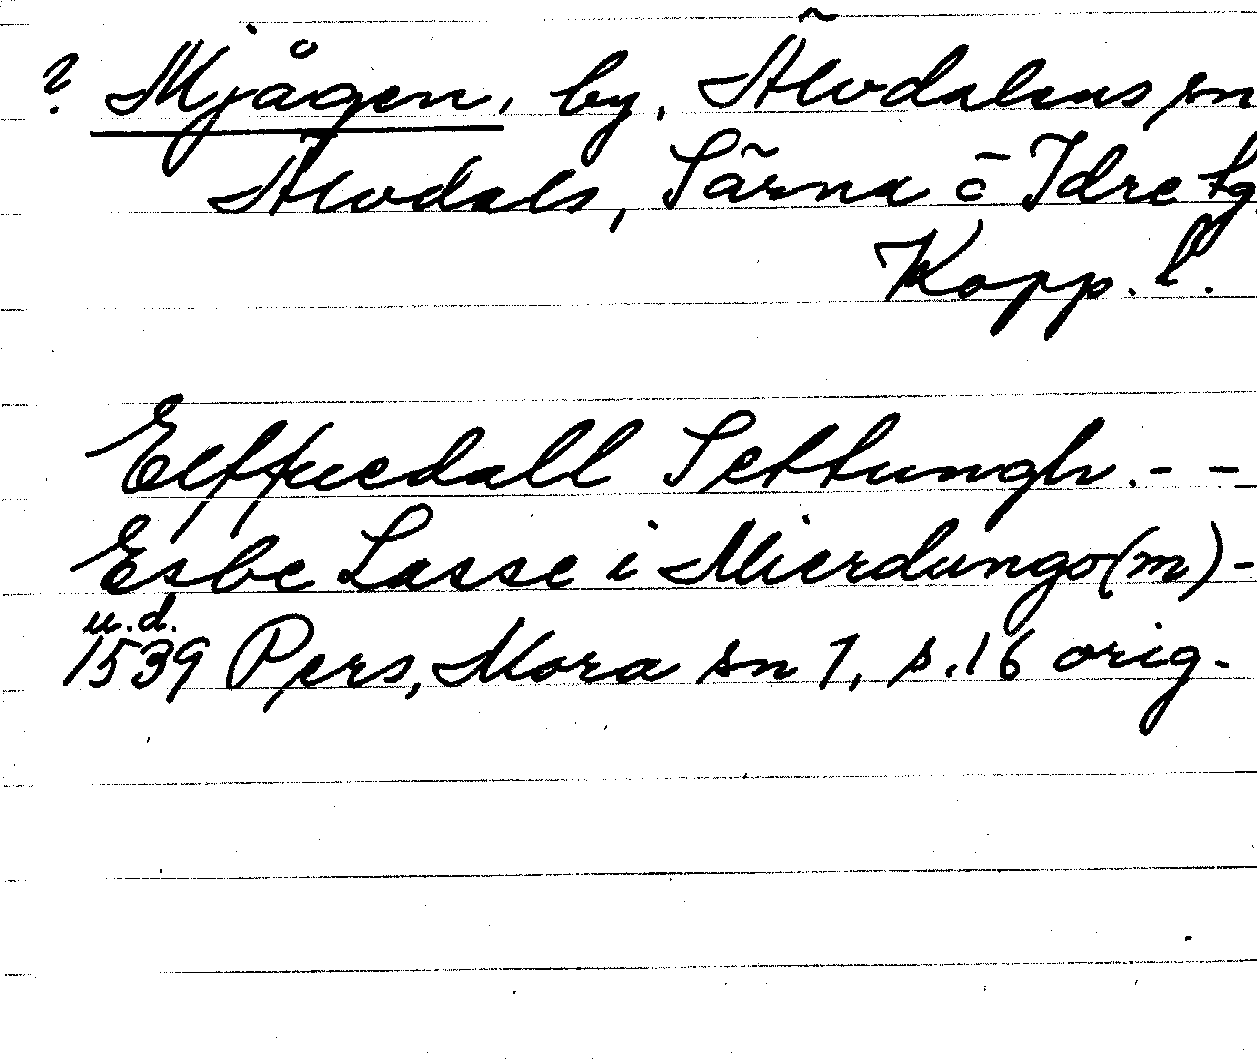 ? Mjågen, by, Älvdalens sn
Älvdals, Särna o Idre tg
Kopp. l.
Elffuedall Settungh. - -
Esbe Lasse i Mierdungo(m) -
u.d.
1539 Pers, Mora sn 1, s. 16 orig.